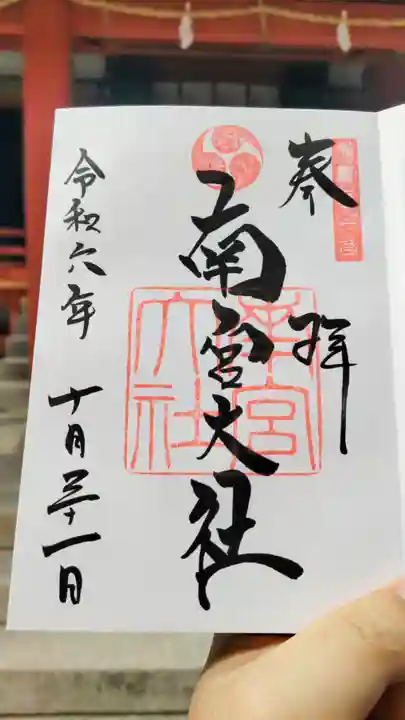 奉拝
南宮大社
南宮大社
令和六年
十月三十一日